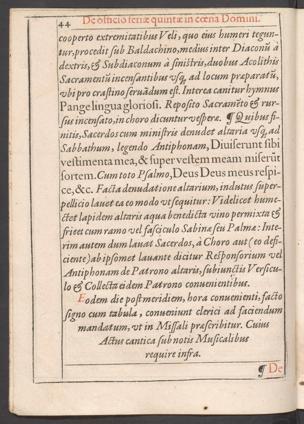 44
De officio feriæ quintæ in cœna Domini.
cooperto extremitatibus Veli, quo eius humeri tegun-
tur, procedit sub Baldachino, medius inter Diaconũ à
dextris, & Subdiaconum à sinistris, duobus Acolithis
Sacramentũ incensantibus vsq; ad locum præparatũ,
vbi pro crastino seruãdum est. Interea canitur hymnus
Pange lingua gloriosi. Reposito Sacramẽto & rur-
sus incensato, in choro dicuntur vesperæ. ¶ Quibus fi-
nitis, Sacerdos cum ministris denudet altaria vsq; ad
Sabbathum, legendo Antiphonam, Diuiserunt sibi
vestimenta mea, & super vestem meam miserũt
sortem. Cum toto Psalmo, Deus Deus meus respi-
ce, &c. Facta denudatione altarium, indutus super-
pellicio lauet ea eo modo vt sequitur: Videlicet hume-
ctet lapidem altaris aqua benedicta vino permixta &
fricet cum ramo vel fasciculo Sabina seu Palma: Inte-
rim autem dum lauat Sacerdos, à Choro aut (eo defi-
ciente) ab ipsomet lauante dicitur Responsorium vel
Antiphonam de Patrono altaris, subiunctis Versicu-
lo & Collecta eidem Patrono conuenientibus.
Eodem die post meridiem, hora conuenienti, facto
signo cum tabula, conueniunt clerici ad faciendum
mandatum, vt in Missali præscribitur. Cuius
Actus cantica sub notis Musicalibus
require infra.
¶ De